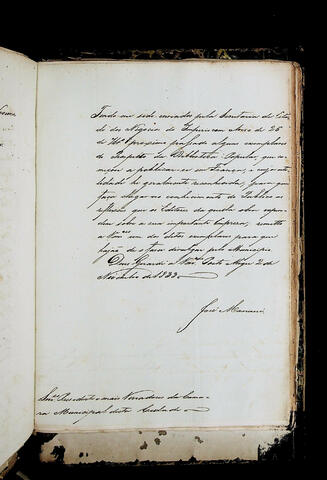 Tendo me sido enviados pela Secretaria de Esta-
do dos Negocios do Imperio em Aviso de 25
de 7br.o proximo passado alguns exemplares
do Prospecto da Bibliotheca Popular, que co-
meçou a publicar-se em França, cuja uti-
lidade he geralmente reconhecida, para que
faça chegar ao conhecimento do Publico as
reflexões que os Editores da quella obra expen-
dem sobre a sua importante Empreza, remetto
a Vmces um de ditos exemplares para que
hajão de o fazer divulgar pelo Municipio.
Deos Guarde a Vmces Porto Alegre 2 de
Novembro de 1833.
José Mariani
Snres Presidente e mais Vereadores da Cama-
ra Municipal desta Cidade